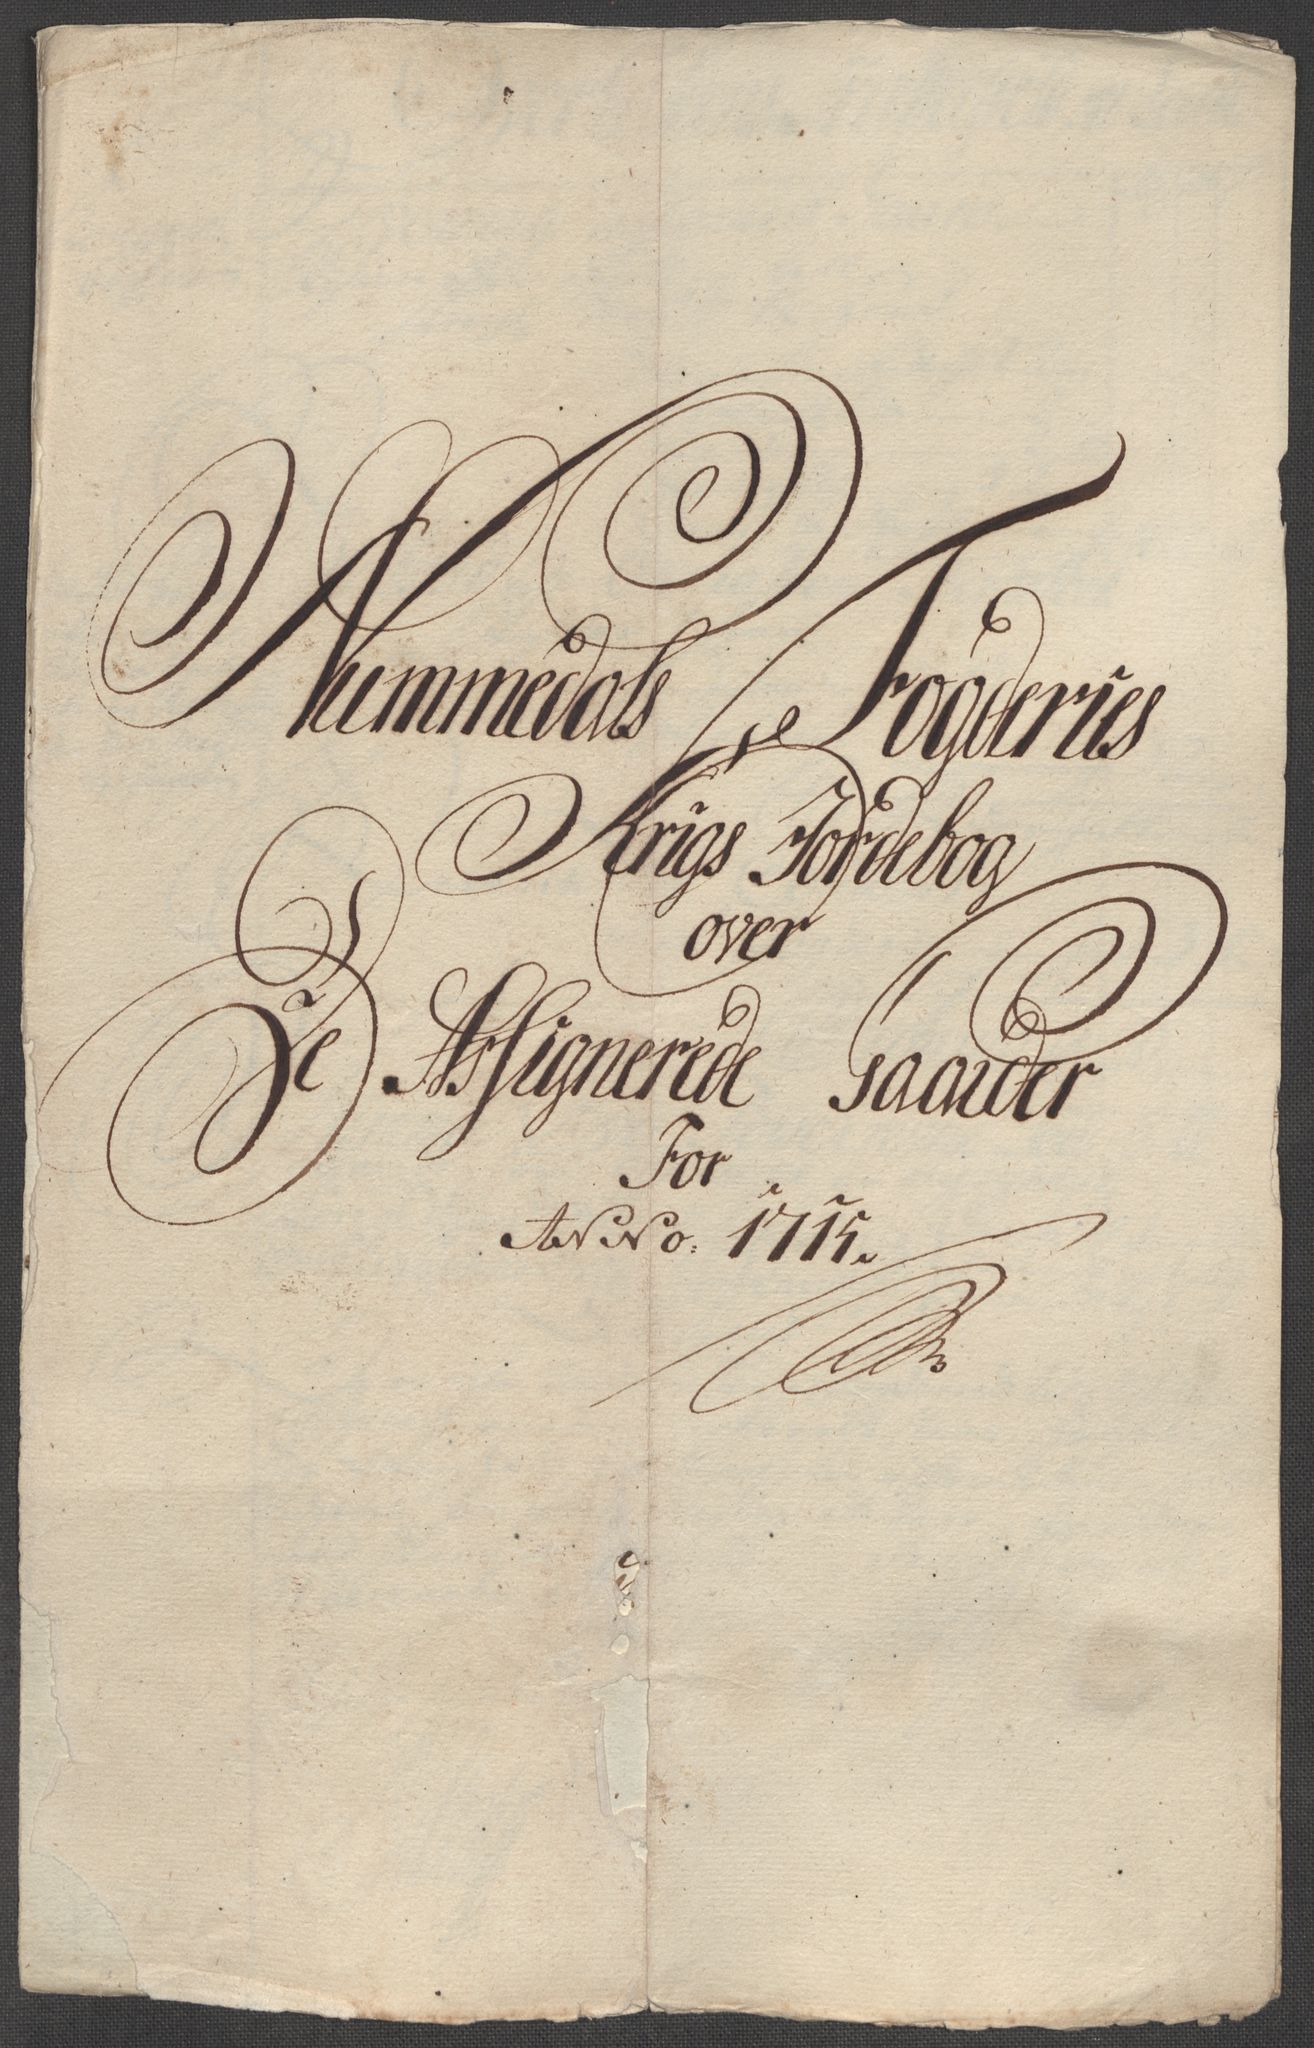 Nummedals Fogderies
Krigs Jordebog
over
De Assignerede Gaarder
For
ANNo: 1715.